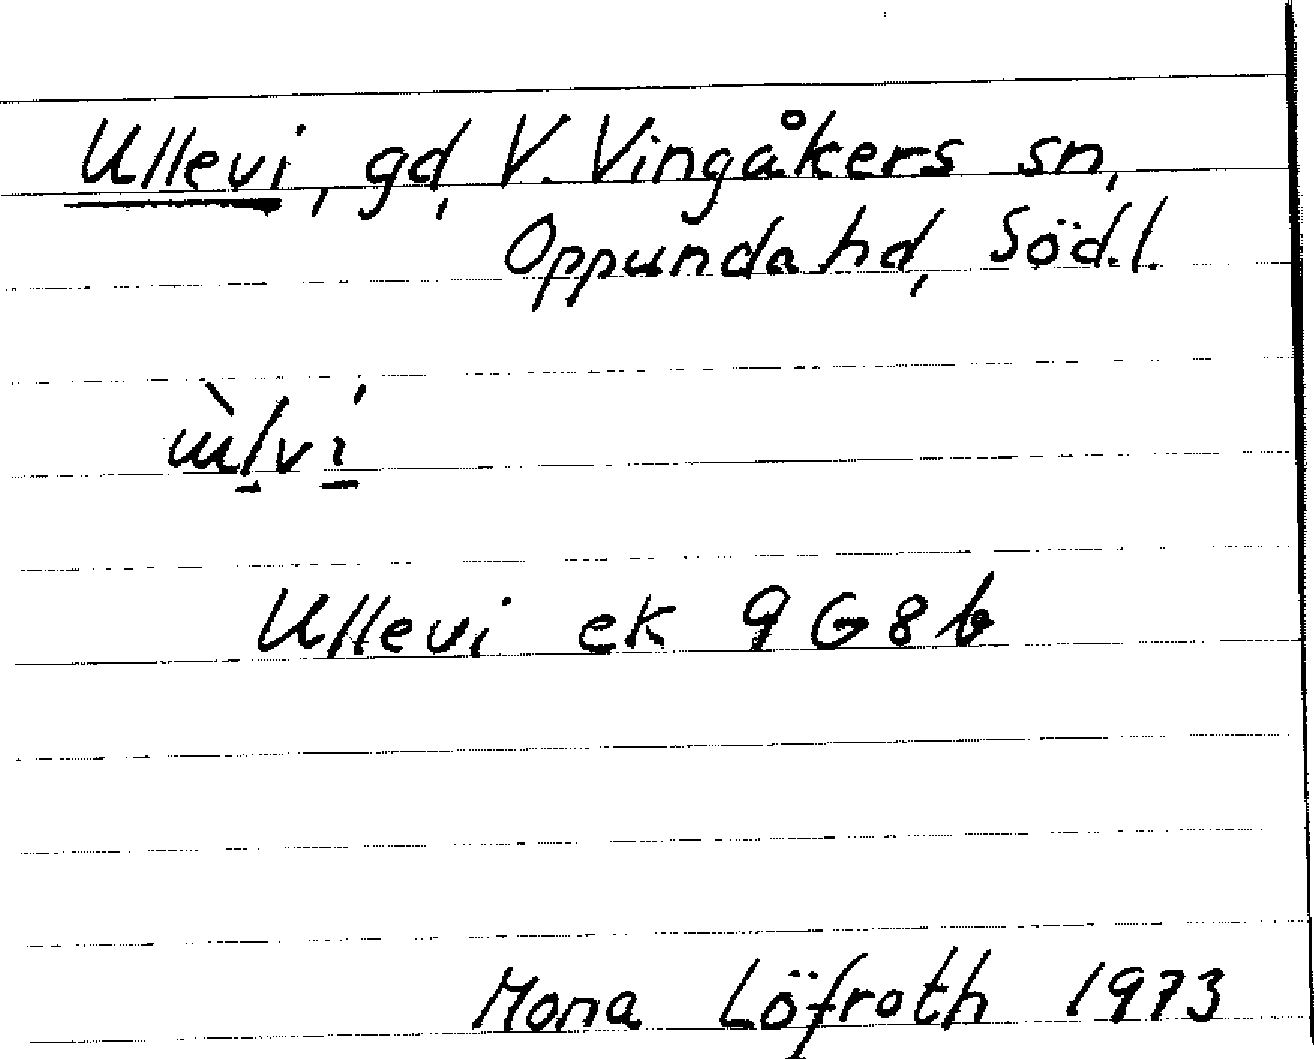 Ullevi, gd, V. Vingåkers sn,
Oppunda hd, Söd.l.
Ullevi ek 9G8b
Mona Löfroth 1973